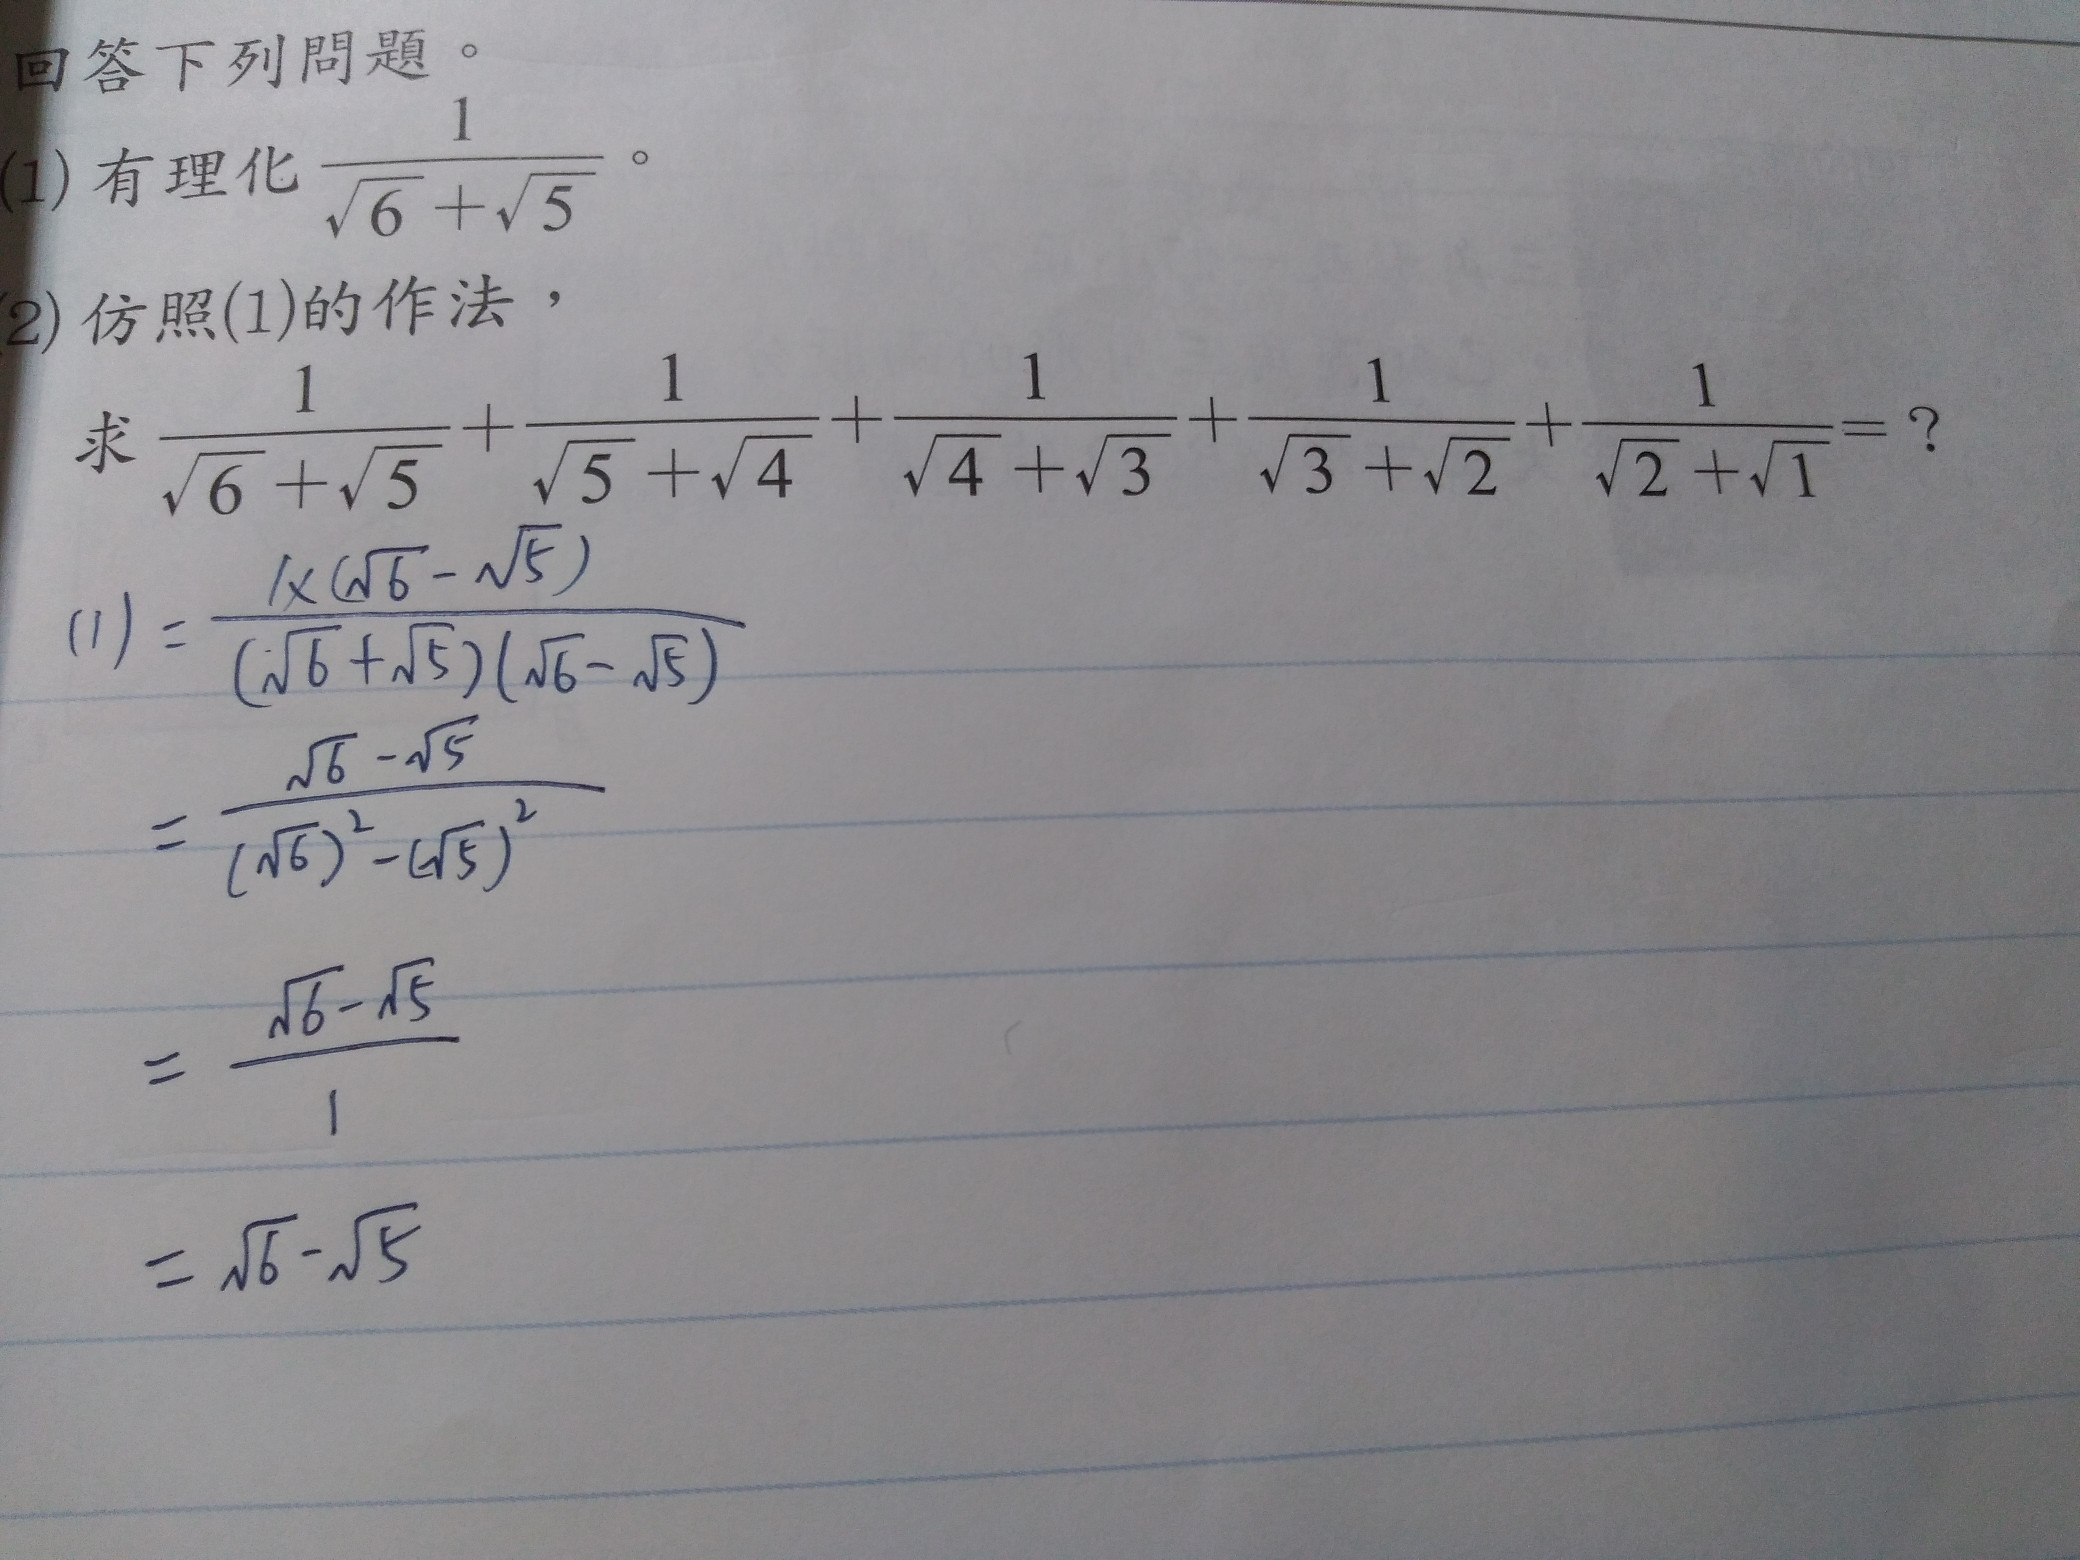 回答下列問題。
(1) 有理化 1/(√6+√5)。
(2) 仿照(1)的作法，
求 1/(√6+√5) + 1/(√5+√4) + 1/(√4+√3) + 1/(√3+√2) + 1/(√2+√1) = ?
(1) = 1×(√6-√5)/((√6+√5)(√6-√5))
= (√6-√5)/((√6)²-(√5)²)
= (√6-√5)/1
= √6-√5